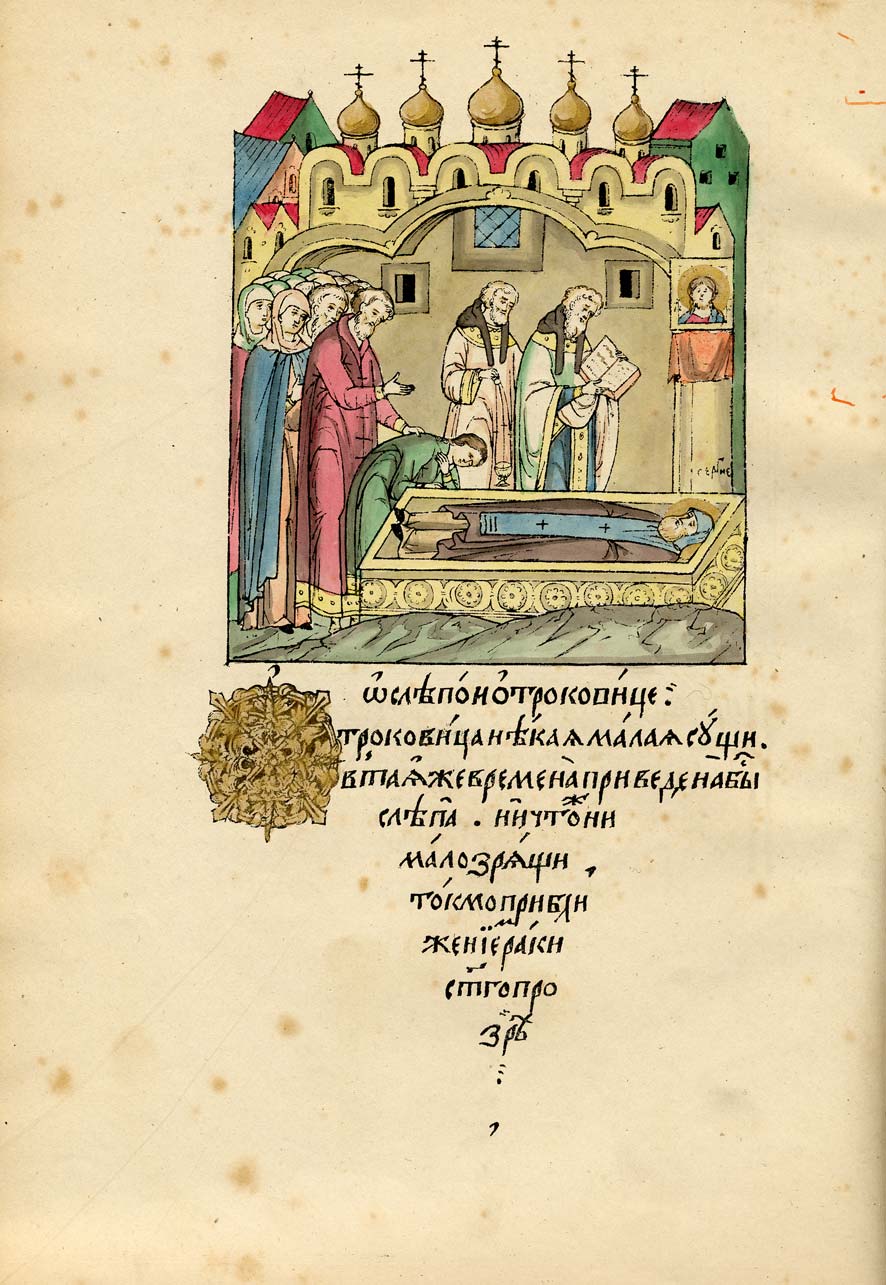 серги
ѽслѣпо́ио҆трокови́це
трокови́цанѣ́каѧма́лаѧсꙋ́щи.
втаѧ҆жевремена̀приведена̀бы́
слѣпа̀. ничто́жни
ма́лозрѧ́щи,
то́кмоприбли
же́нїера́ки
ст҃гопро
зрѣ̀